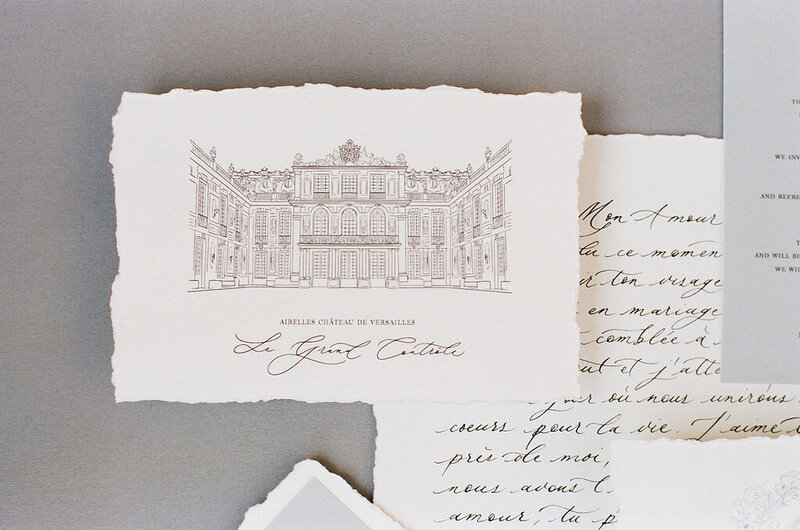 AIRELLES CHÂTEAU DE VERSAILLES
Le Grand Controle
Mon Amour
ce momen
ton visage
en mariage
comblée à
et j'atte
où nous unirons
coeurs pour la vie. J'aime
près de moi,
nous avons
amour, tu p
TH
WE INV
AND REFRE
T
AND WILL BE
WE WIL